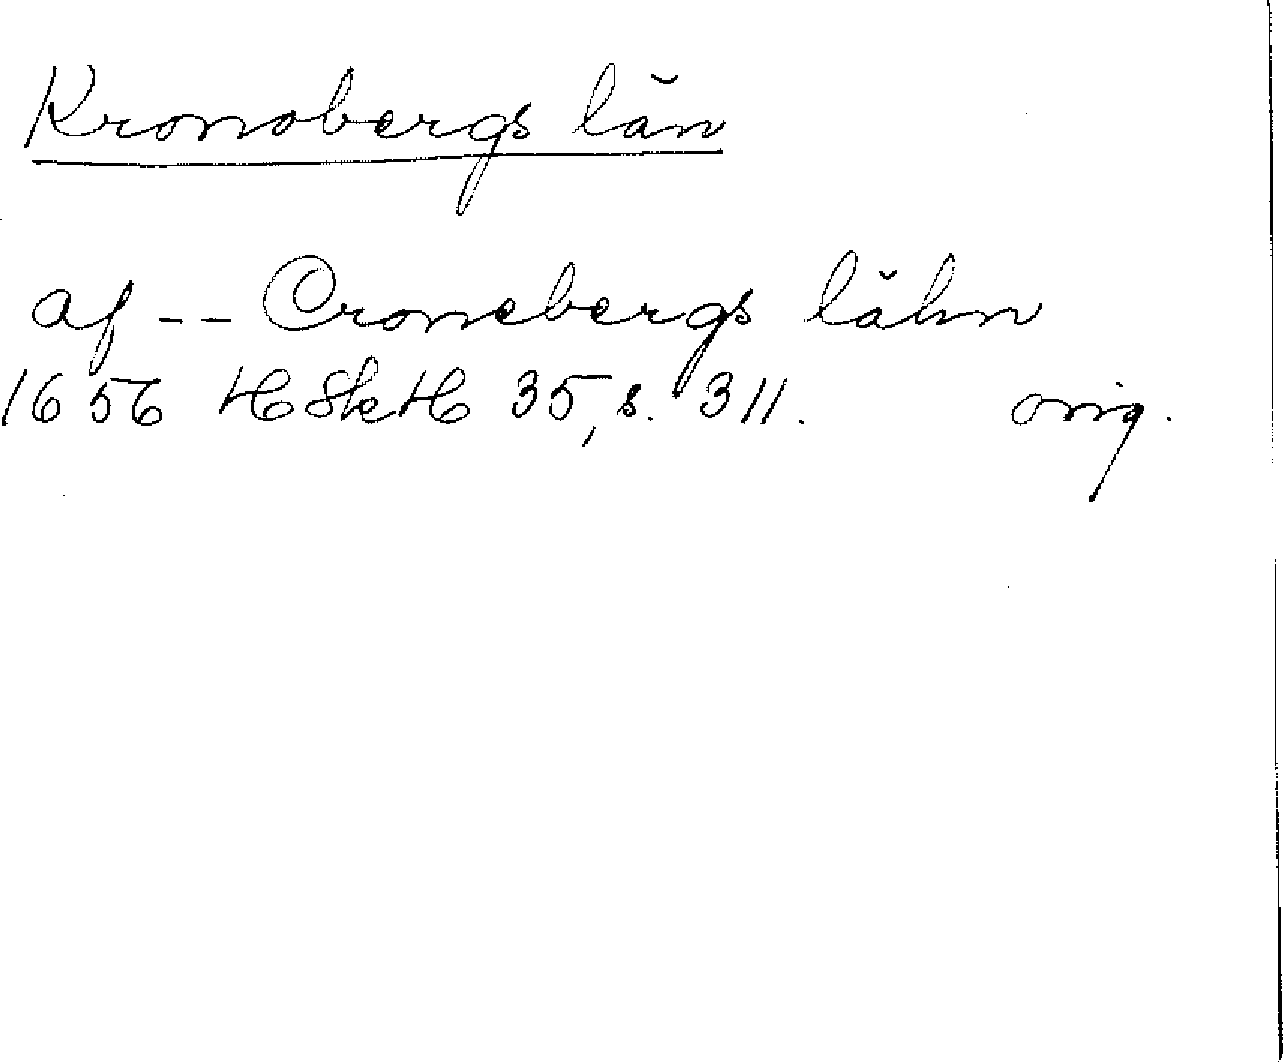 Kronobergs län
af -- Cronebergs lähn
1656 HSkH 35, s. 311. orig.